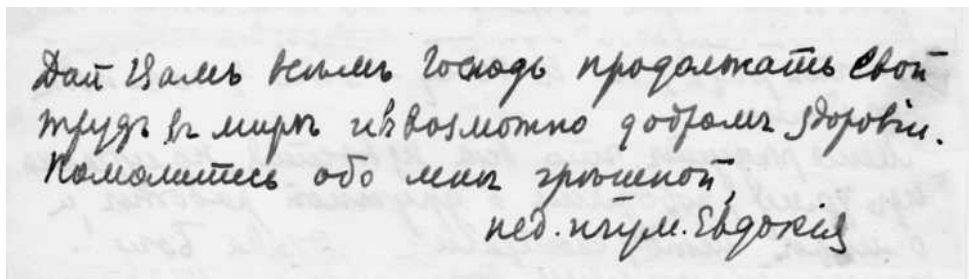 Дай Вамъ всѣмъ Господь продолжать свой
трудъ въ мирѣ и въ возможно добромъ здоровіи.
Помолитесь обо мнѣ грѣшной,
нед. игум. Евдокія